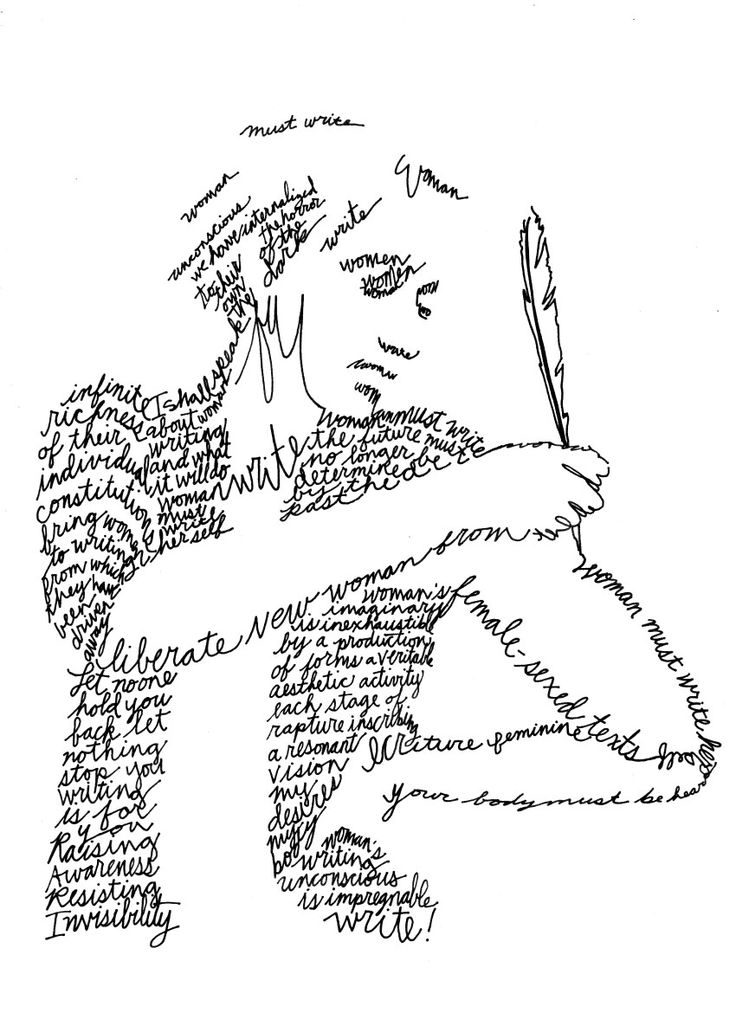 must write
Woman
woman
unconscious
we have internalized
the horror
of the
dark
write
to their
own
the
women
women
woman
ware
wom
I shall speak
about woman
writing
and what
it will do
woman
must
write
herself
infinite
richness
of their
individual
constitution
bring women
to writing
from which
they have
been
driven
away
write
woman must write
the future must
no longer
be determined
by the
past
liberate New woman from
Let no one
hold you
back let
nothing
stop you
writing
is for
you
Raising
Awareness
Resisting
Invisibility
woman's
imaginary
is inexhaustible
by a production
of forms a veritable
aesthetic activity
each stage of
rapture inscribing
a resonant
vision
my
desires
my
woman's
writing
unconscious
is impregnable
write!
female-sexed texts
ecriture feminine
woman must write her
Your body must be hear